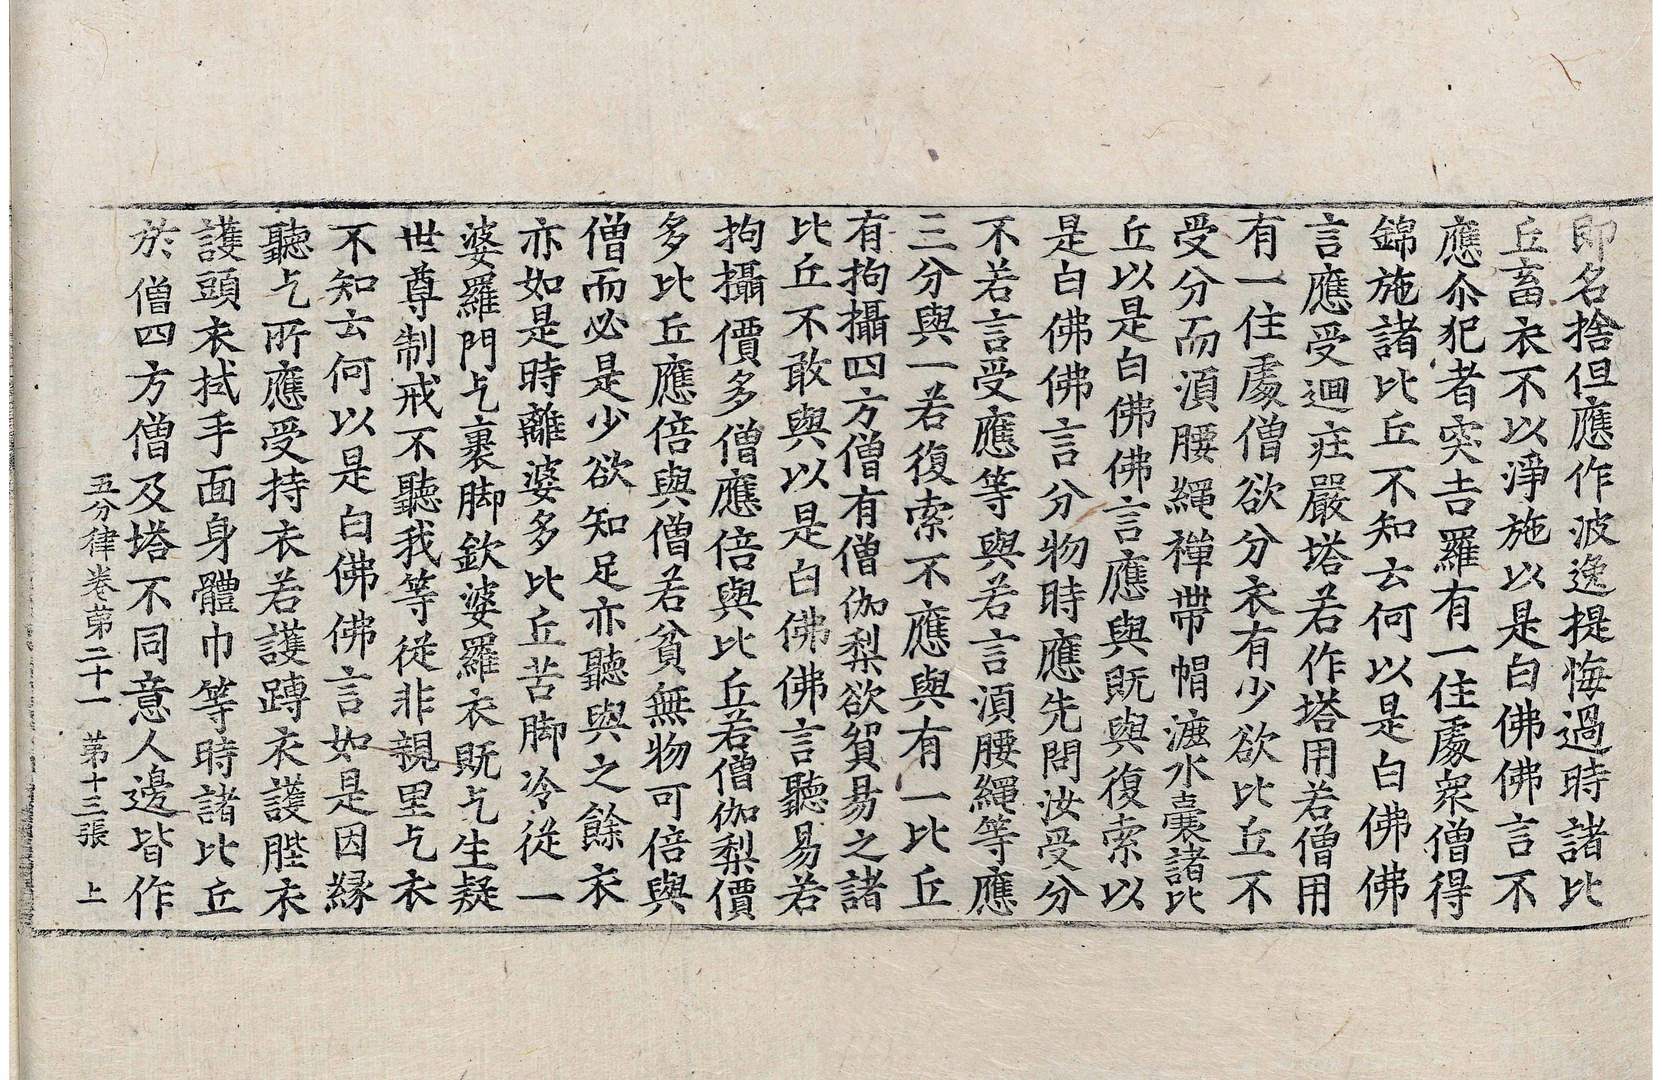 即名捨但應作波逸提悔過時諸比
丘畜衣不以淨施以是白佛佛言不
應尒犯者突吉羅有一住處衆僧得
錦施諸比丘不知云何以是白佛佛
言應受迴庄嚴塔若作塔用若僧用
有一住處僧欲分衣有少欲比丘不
受分而湏腰繩禪帶帽漉水囊諸比
丘以是白佛佛言應與既與復索以
是白佛佛言分物時應先問汝受分
不若言受應等與若言湏腰繩等應
三分與一若復索不應與有一比丘
有拘攝四方僧有僧伽梨欲貿易之諸
比丘不敢與以是白佛佛言聽易若
拘攝價多僧應倍與比丘若僧伽梨價
多比丘應倍與僧若貧無物可倍與
僧而必是少欲知足亦聽與之餘衣
亦如是時離婆多比丘苦脚冷從一
婆羅門乞裹脚欽婆羅衣既乞生疑
世尊制戒不聽我等從非親里乞衣
不知云何以是白佛佛言如是因緣
聽乞所應受持衣若護蹲衣護䏶衣
護頭衣拭手面身體巾等時諸比丘
於僧四方僧及塔不同意人邊皆作
五分律卷第二十一　第十三張　上